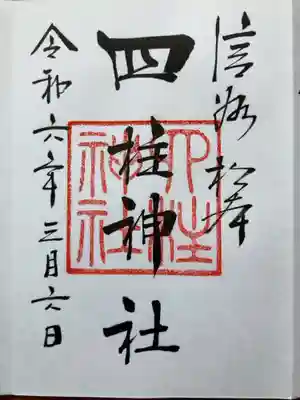 信州松本
四柱神社
四柱神社
令和六年三月六日